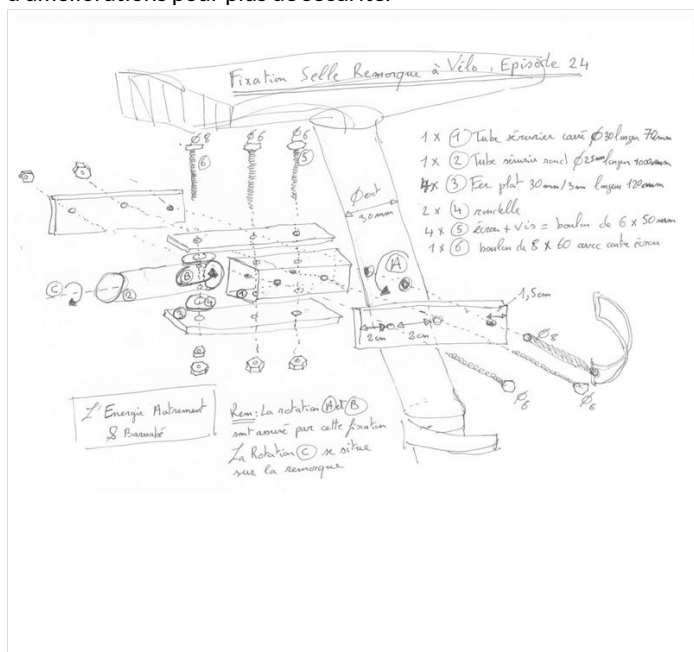 d'améliorations pour plus de sécurité.
Fixation Selle Remorque à Vélo : Episode 24
1 x ① Tube serrurier carré Ø30 longueur 70mm
1 x ② Tube serrurier rond Ø25mm longueur 1000mm
4x ③ Fer plat 30mm/3mm longueur 120mm
2 x ④ rondelle
4 x ⑤ écrou + vis = boulon de 6 x 50mm
1 x ⑥ boulon de 8 x 60 avec contre écrou
Ø8
Ø6
Ø6
⑥
⑤
Øext
30mm
Ⓐ
Ⓒ
②
Ⓑ
①
④
③
1,5cm
2cm
3cm
Ø8
Ø6
Ø6
L'Energie Autrement
& Barnabé
Rem: La rotation Ⓐ et Ⓑ
sont assuré par cette fixation
La Rotation Ⓒ se situe
sur la remorque